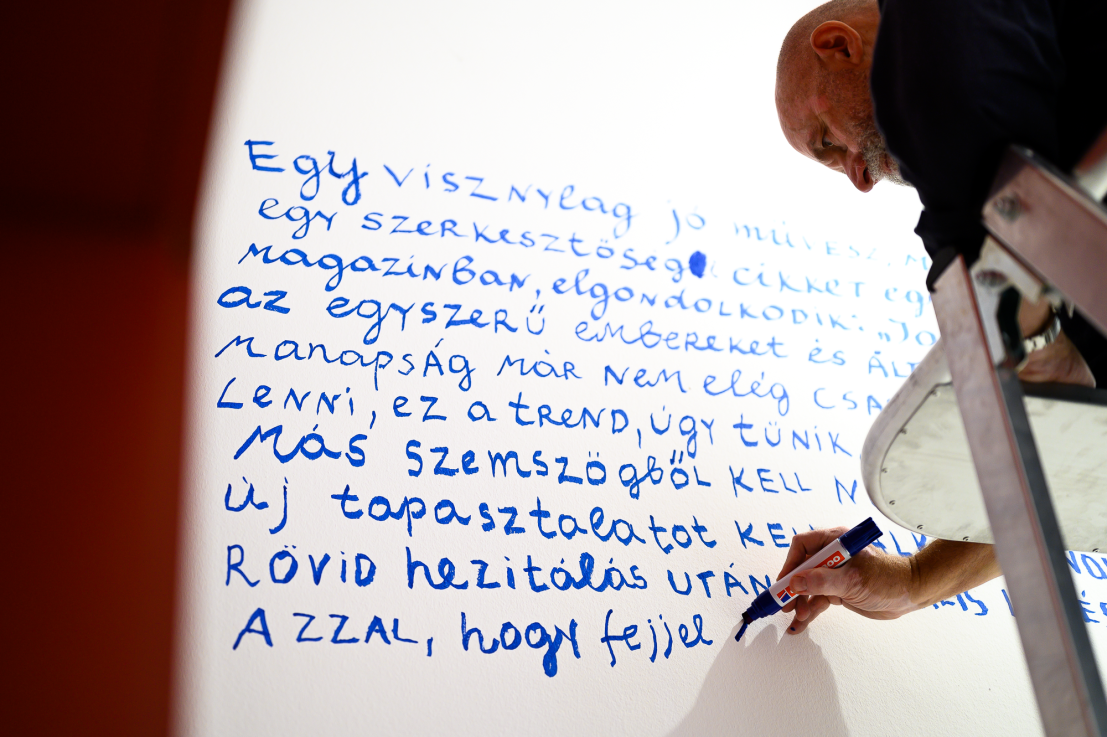 Egy visznylag jó művész
egy szerkesztőség cikket
magazinban, elgondolkodik: „Jo
az egyszerű embereket és ÁLT
manapság már nem elég CSA
Lenni, ez a trend, úgy tűnik
más szemszögből kell N
új tapasztalatot
Rövid hezitálás után
Azzal, hogy fejjel